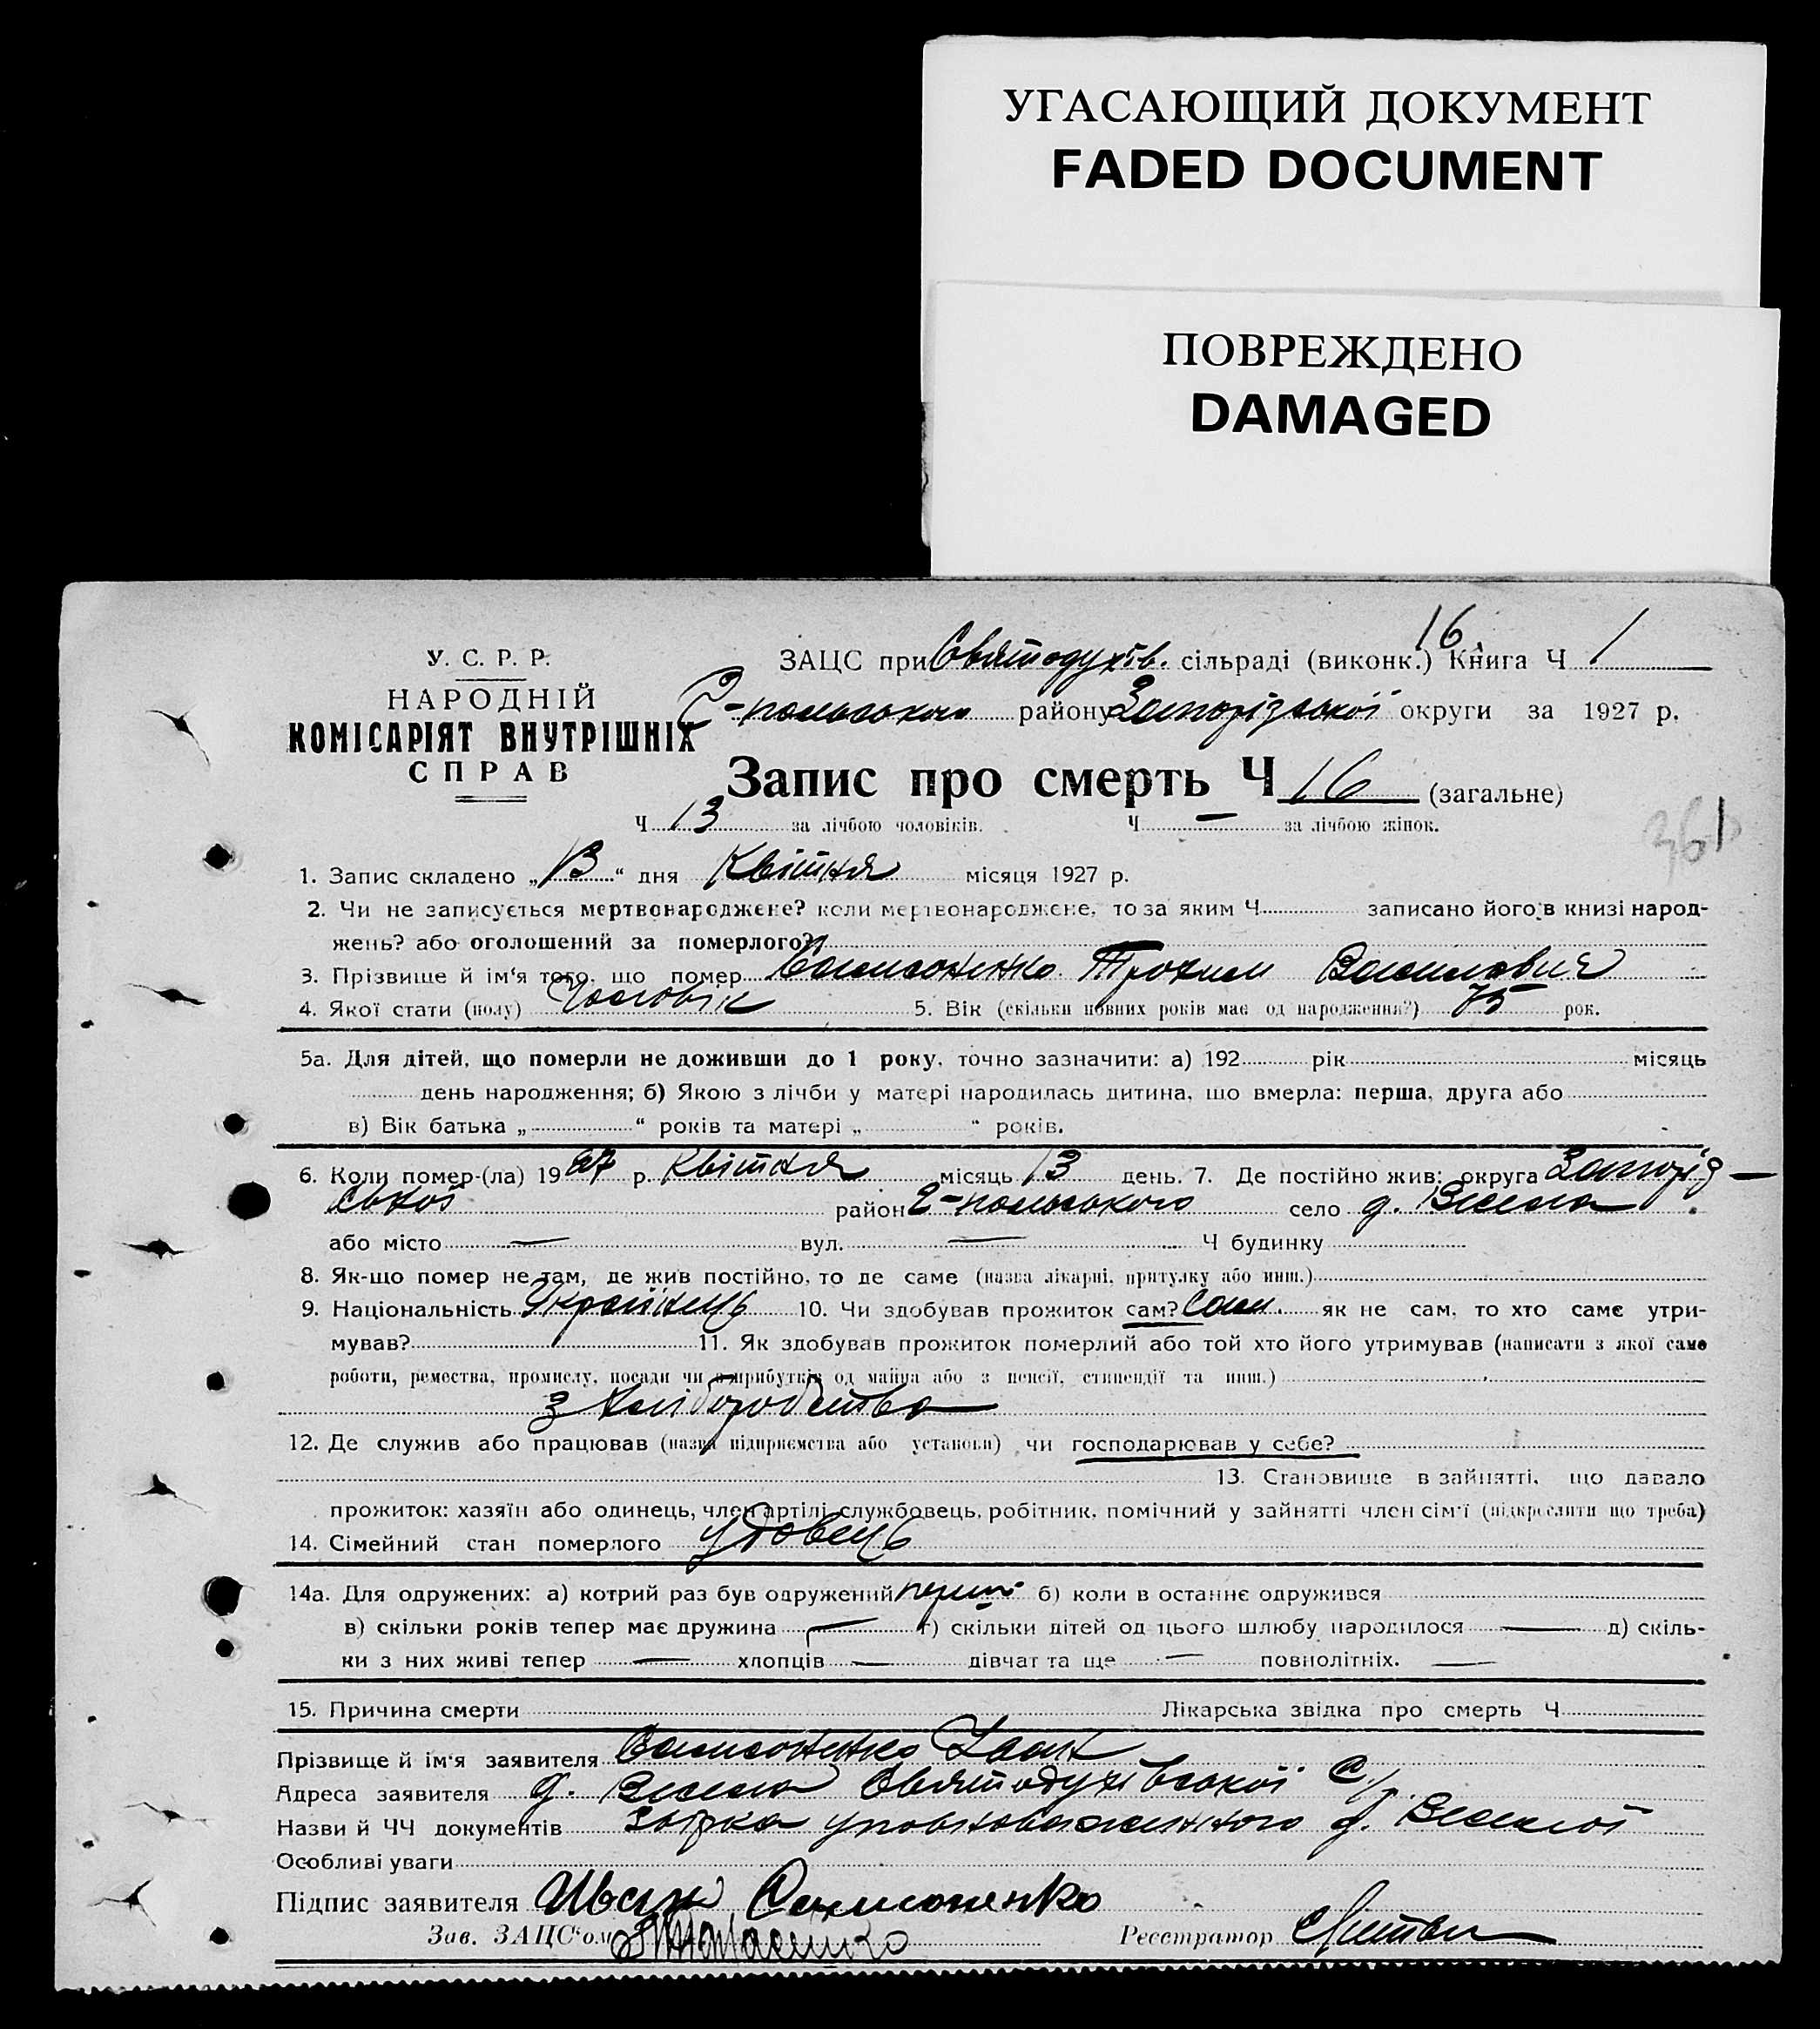 УГАСАЮЩИЙ ДОКУМЕНТ
FADED DOCUMENT
ПОВРЕЖДЕНО
DAMAGED
У. С. Р. Р.
НАРОДНІЙ
КОМІСАРІЯТ ВНУТРІШНІХ
СПРАВ
16
ЗАЦС при Святодухів. сільраді (виконк.) Книга Ч 1
району Запорізької округи за 1927 р.
Запис про смерть Ч 16 (загальне)
Ч 13 за лічбою чоловіків. Ч — за лічбою жінок.
361
1. Запис складено „13“ дня Квітня місяця 1927 р.
2. Чи не записується мертвонароджене? коли мертвонароджене, то за яким Ч записано його в книзі народ-
жень? або оголошений за померлого?
3. Прізвище й ім‘я того, що помер Самсоненко Трохим Василович
4. Якої стати (полу) Чоловік 5. Вік (скільки повних років має од народження?) 75 рок.
5а. Для дітей, що померли не доживши до 1 року, точно зазначити: а) 192 рік місяць
день народження; б) Якою з лічби у матері народилась дитина, що вмерла: перша, друга або
в) Вік батька „ “ років та матері „ “ років.
6. Коли помер-(ла) 1927 р. Квітня місяць 13 день. 7. Де постійно жив: округа Запоріз-
ської район село д. Весела
або місто — вул. — Ч будинку
8. Як-що помер не там, де жив постійно, то де саме (назва лікарні, притулку або инш.)
9. Національність Українець 10. Чи здобував прожиток сам? Сам. як не сам, то хто саме утри-
мував? 11. Як здобував прожиток померлий або той хто його утримував (написати з якої саме
роботи, ремества, промислу, посади чи з прибутків од майна або з пенсії, стипендії та инш.)
з хліборобства
12. Де служив або працював (назва підприємства або установи) чи господарював у себе?
13. Становище в зайнятті, що давало
прожиток: хазяїн або одинець, член артілі, службовець, робітник, помічний у зайнятті член сім‘ї (підкреслити що треба)
14. Сімейний стан померлого удовець
14а. Для одружених: а) котрий раз був одружений б) коли в останнє одружився
в) скільки років тепер має дружина — г) скільки дітей од цього шлюбу народилося — д) скіль-
ки з них живі тепер — хлопців — дівчат та ще — повнолітніх. —
15. Причина смерти Лікарська звідка про смерть Ч
Прізвище й ім‘я заявителя Самсоненко Іван
Адреса заявителя д. Весела Святодухівської С/р
Назви й ЧЧ документів уповноваженного д. Веселої
Особливі уваги
Підпис заявителя Иван Самсоненко
Зав. ЗАЦС‘ом
Реєстратор